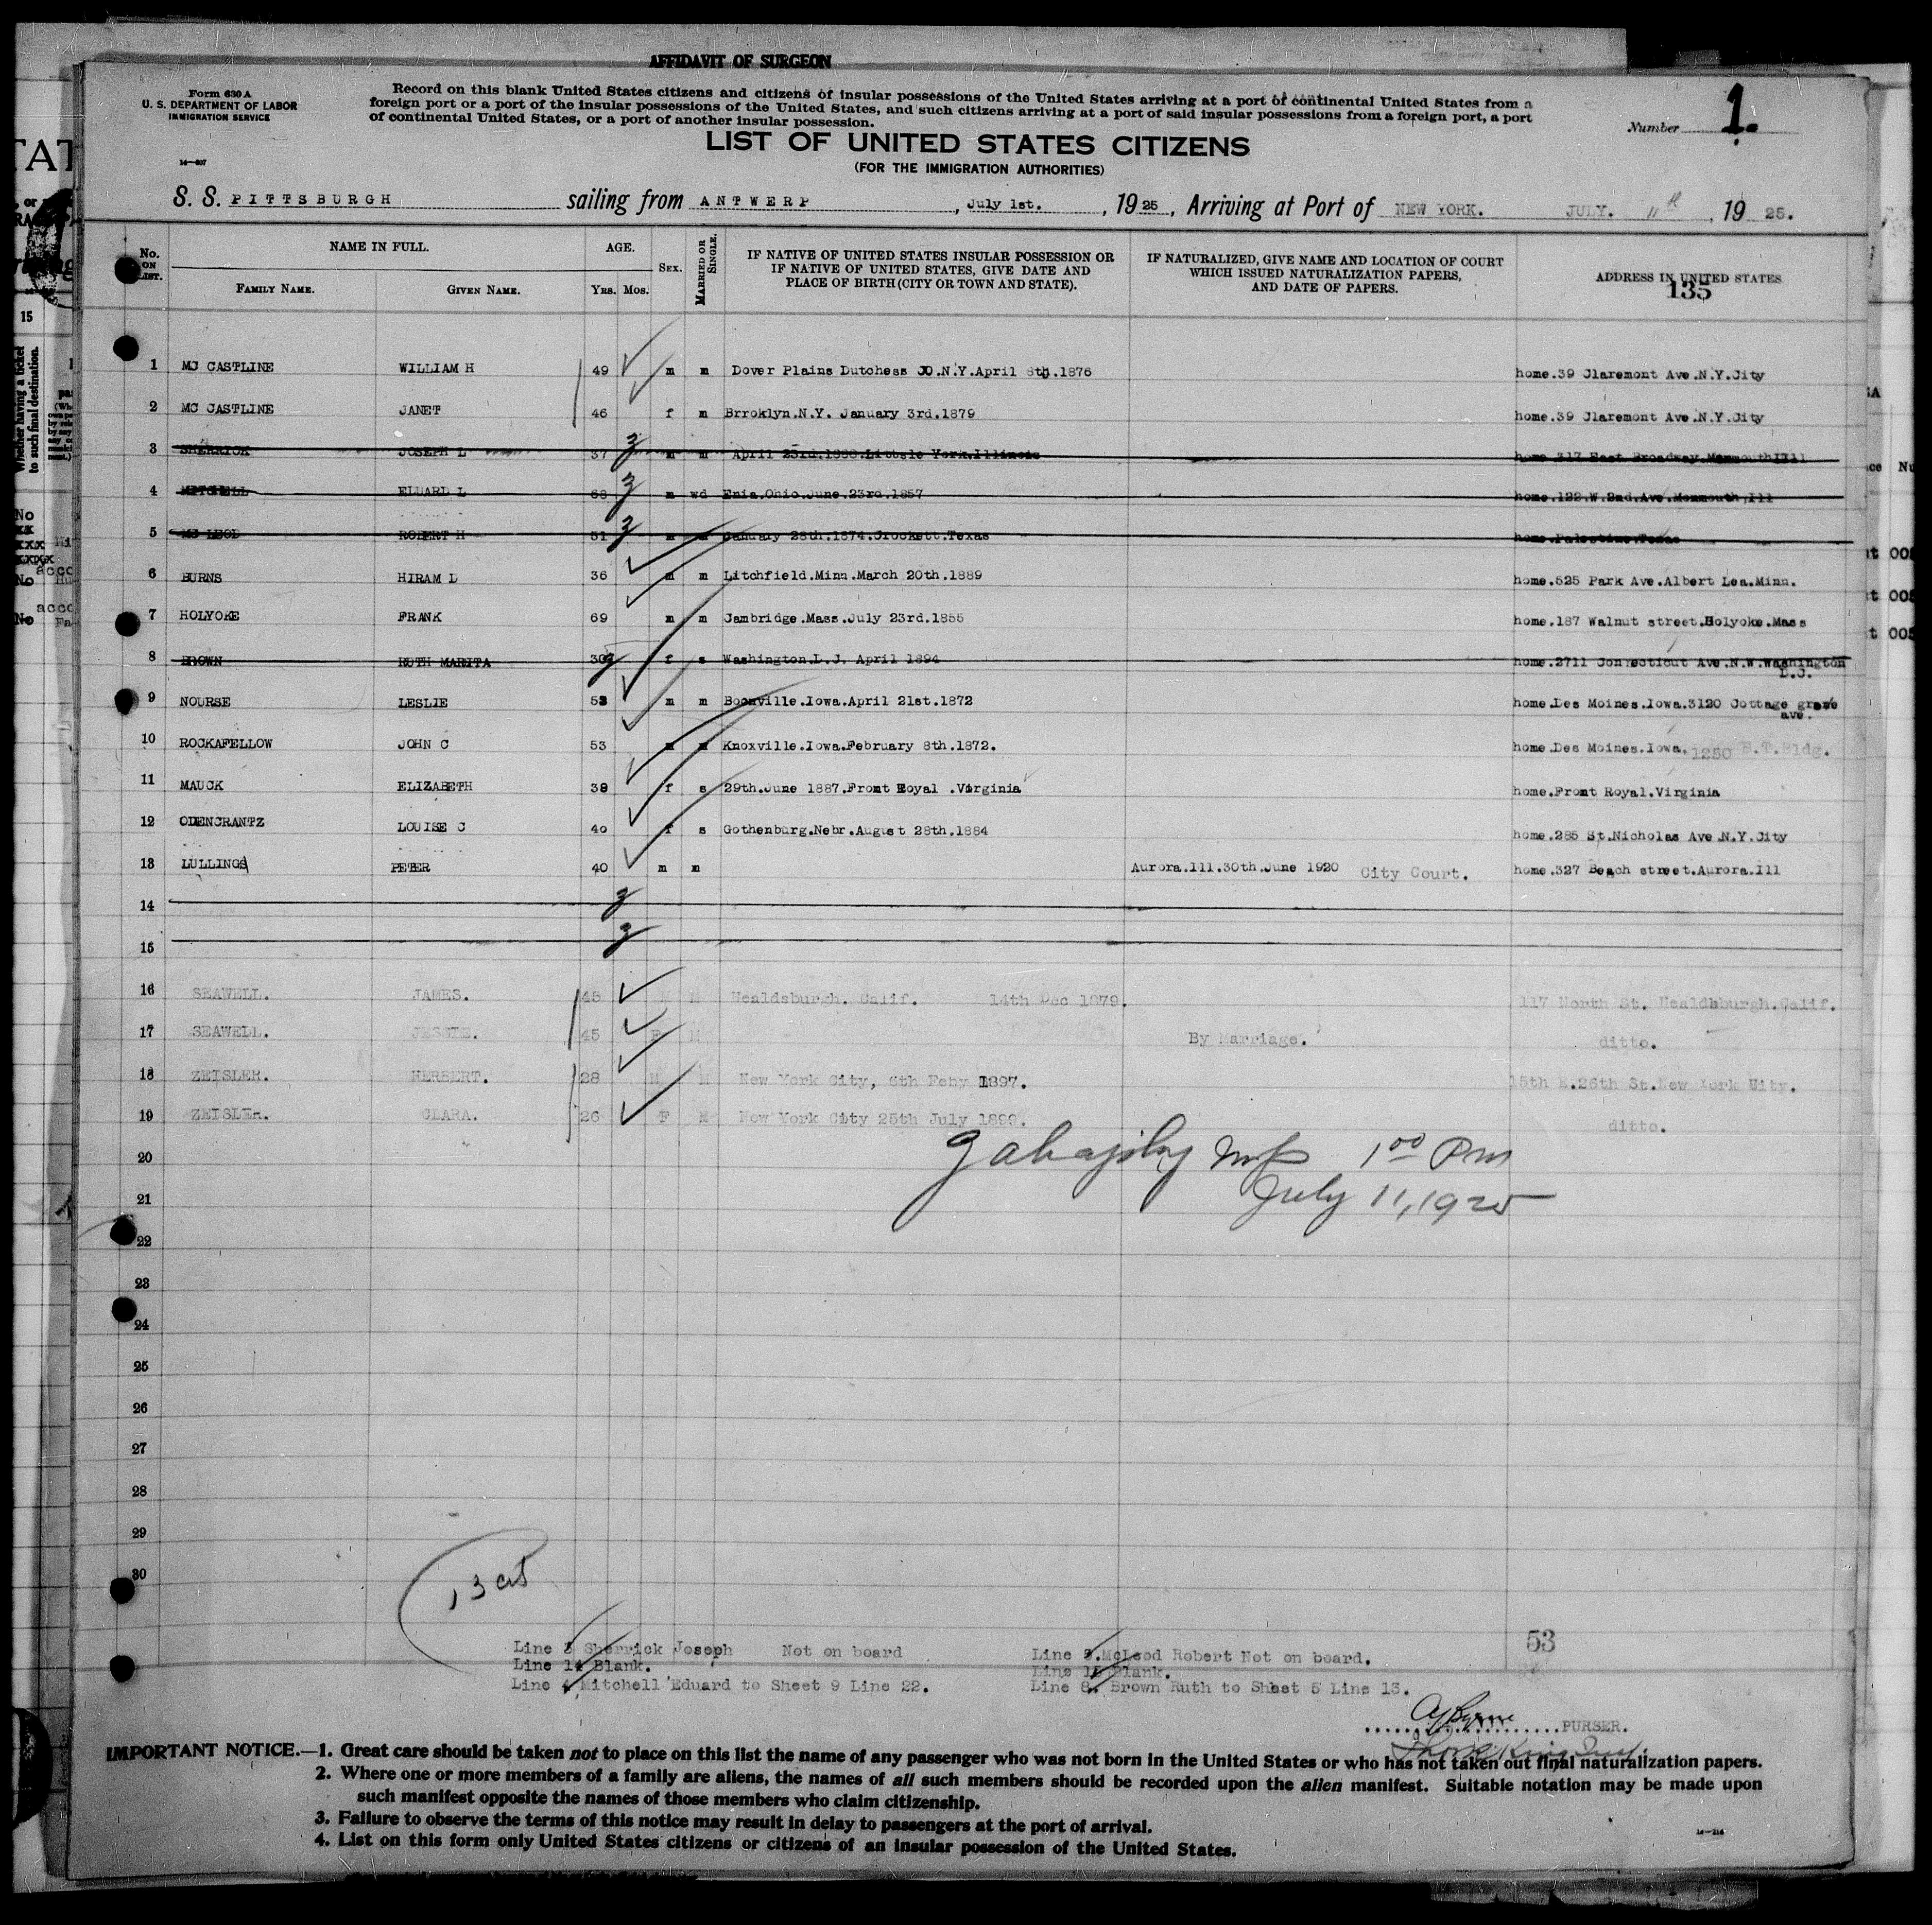 AFFIDAVIT OF SURGEON
Form 630 A
U. S. DEPARTMENT OF LABOR
IMMIGRATION SERVICE
14—607
Record on this blank United States citizens and citizens of insular possessions of the United States arriving at a port of continental United States from a
foreign port or a port of the insular possessions of the United States, and such citizens arriving at a port of said insular possessions from a foreign port, a port
of continental United States, or a port of another insular possession.
Number 1.
LIST OF UNITED STATES CITIZENS
(FOR THE IMMIGRATION AUTHORITIES)
S. S. PITTSBURGH sailing from ANTWERP, July 1st., 1925, Arriving at Port of NEW YORK. JULY. 11th, 1925.
No. ON LIST.
NAME IN FULL.
FAMILY NAME. GIVEN NAME.
AGE.
YRS. MOS.
SEX.
MARRIED OR SINGLE.
IF NATIVE OF UNITED STATES INSULAR POSSESSION OR
IF NATIVE OF UNITED STATES, GIVE DATE AND
PLACE OF BIRTH (CITY OR TOWN AND STATE).
IF NATURALIZED, GIVE NAME AND LOCATION OF COURT
WHICH ISSUED NATURALIZATION PAPERS,
AND DATE OF PAPERS.
ADDRESS IN UNITED STATES
135
1 MC CASTLINE WILLIAM H 49 m m Dover Plains Dutchess CO.N.Y.April 8th.1876 home.39 Claremont Ave.N.Y.City
2 MC CASTLINE JANET 46 f m Brroklyn.N.Y. January 3rd.1879 home.39 Claremont Ave.N.Y.City
3 SHERRICK JOSEPH L 37 m m April 23rd.1888.Little York.Illinois home.317 East Broadway.Monmouth Ill
4 MITCHELL EDUARD L 68 m wd Enia.Ohio.June.23rd.1857 home.122.W.2nd.Ave.Monmouth Ill
5 MC LEOD ROBERT H 51 m m January 28th.1874.Crockett.Texas home.Palestine.Texas
6 BURNS HIRAM D 36 m m Litchfield.Minn.March 20th.1889 home.525 Park Ave.Albert Lea.Minn.
7 HOLYOKE FRANK 69 m m Cambridge.Mass.July 23rd.1855 home.187 Walnut street.Holyoke.Mass
8 BROWN RUTH MARITA 30 f s Washington.D.C. April 1894 home.2711 Connecticut Ave.N.W.Washington D.C.
9 NOURSE LESLIE 53 m m Boonville.Iowa.April 21st.1872 home.Des Moines.Iowa.3120 Cottage grove ave.
10 ROCKAFELLOW JOHN C 53 m m Knoxville.Iowa.February 8th.1872. home.Des Moines.Iowa. 1250 B.T.Bldg.
11 MAUCK ELIZABETH 38 f s 29th.June 1887.Front Royal .Virginia home.Front Royal.Virginia
12 ODENCRANTZ LOUISE C 40 f s Gothenburg.Nebr.August 28th.1884 home.285 St.Nicholas Ave.N.Y.City
13 LULLINGS PETER 40 m m Aurora.Ill.30th.June 1920 City Court. home.327 Beach street.Aurora.Ill
14
15
16 SEAWELL. JAMES. 45 M M Healdsburgh. Calif. 14th Dec 1879. 117 North St. Healdsburgh.Calif.
17 SEAWELL. JESSIE. 45 F M By Marriage. ditto.
18 ZEISLER. HERBERT. 28 M M New York City, 6th Feby 1897. 15th E.26th St.New York City.
19 ZEISLER. CLARA. 26 F M New York City 25th July 1899. ditto.
20
1 00 Pm
21
July 11, 1925
22
23
24
25
26
27
28
29
30
13 cit
53
Line 3 Sherrick Joseph Not on board Line 5.McLeod Robert Not on board.
Line 14 Blank. Line 15 Blank.
Line 4 Mitchell Eduard to Sheet 9 Line 22. Line 8. Brown Ruth to Sheet 5 Line 13.
PURSER.
IMPORTANT NOTICE.—1. Great care should be taken not to place on this list the name of any passenger who was not born in the United States or who has not taken out final naturalization papers.
2. Where one or more members of a family are aliens, the names of all such members should be recorded upon the alien manifest. Suitable notation may be made upon
such manifest opposite the names of those members who claim citizenship.
3. Failure to observe the terms of this notice may result in delay to passengers at the port of arrival.
4. List on this form only United States citizens or citizens of an insular possession of the United States.